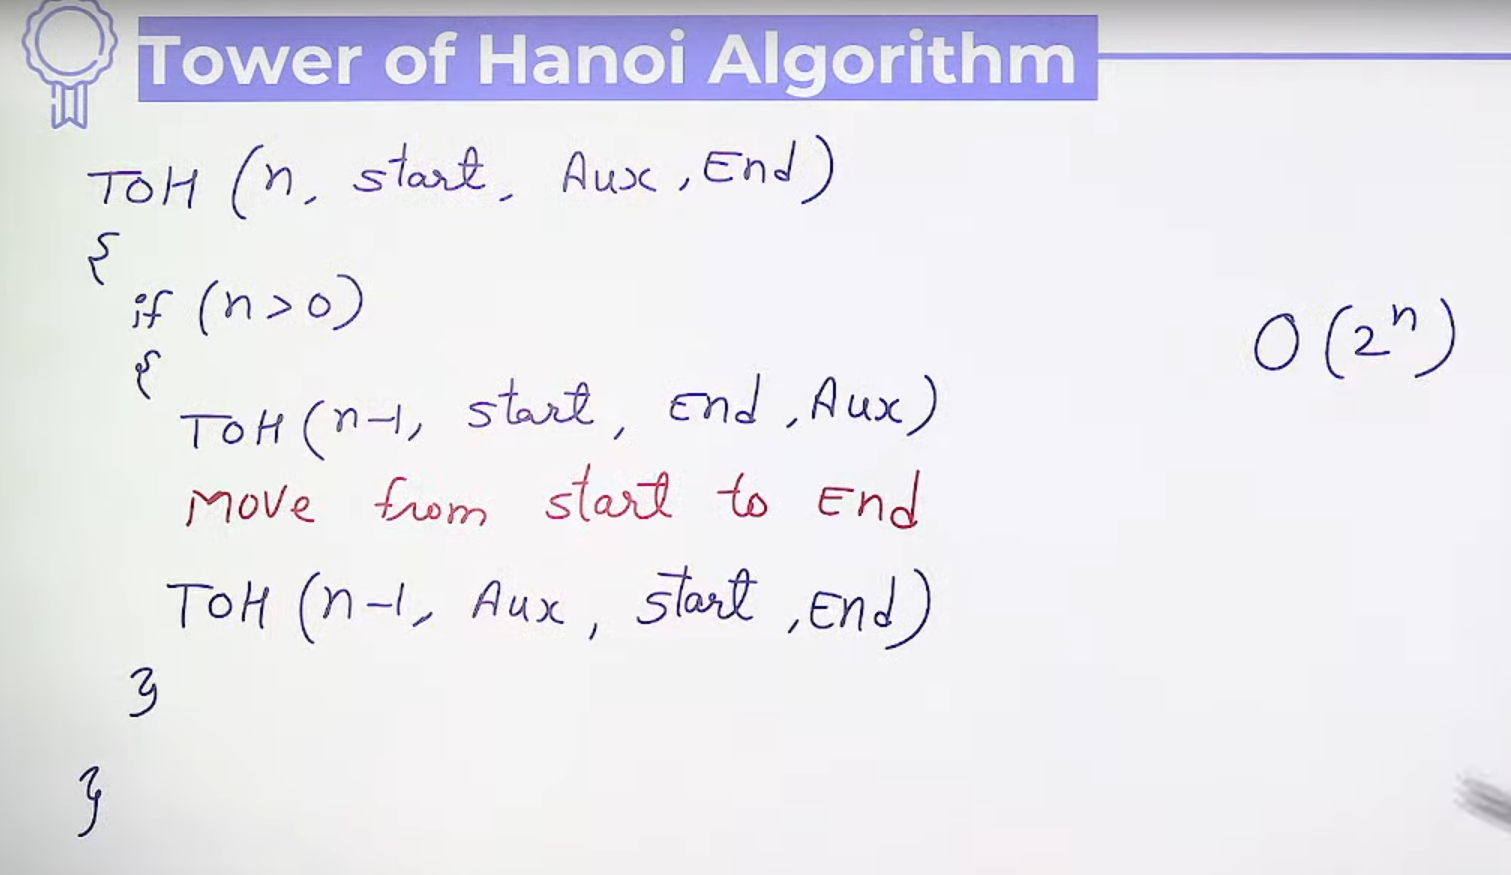 Tower of Hanoi Algorithm
TOH (n, start, Aux, End)
{
if (n>0)
{
TOH (n-1, start, End, Aux)
Move from start to End
TOH (n-1, Aux, start, End)
}
}
O(2ⁿ)